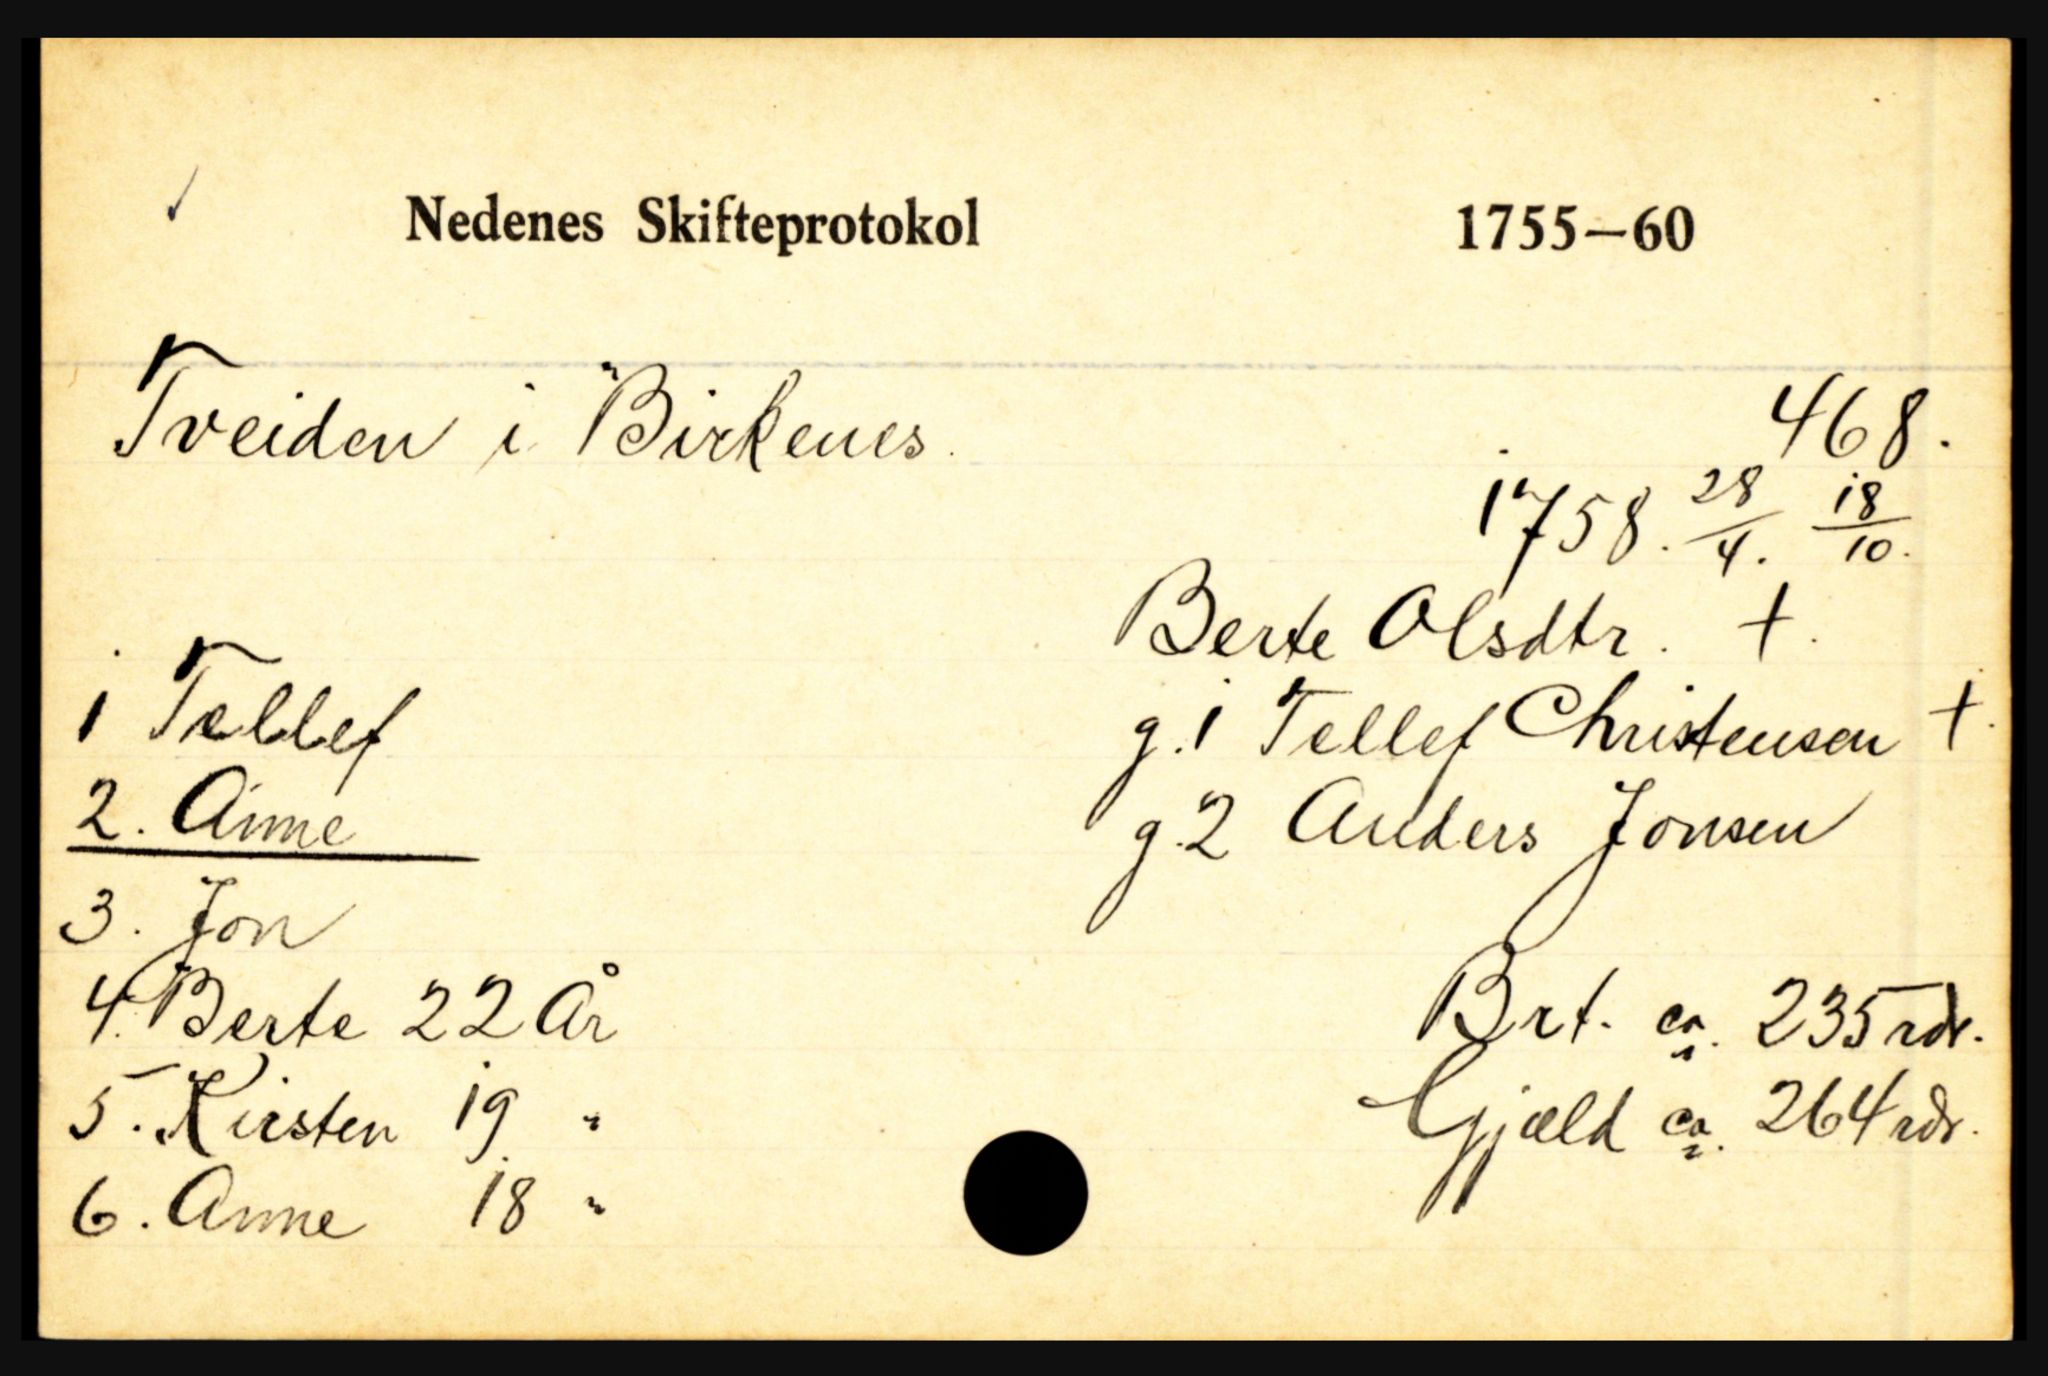 Nedenes Skifteprotokol 1755—60
Tveiden i Birkenes.
468.
1758. 28/4. 18/10.
Berte Olsdtr. †.
g.1 Tellef Christensen †.
g.2 Anders Jonsen
1 Tellef
2. Anne
3. Jon
4. Berte 22 År
5. Kirsten 19 "
6. Anne 18 "
Brt. ca. 235 rdr.
Gjæld ca. 264 rdr.